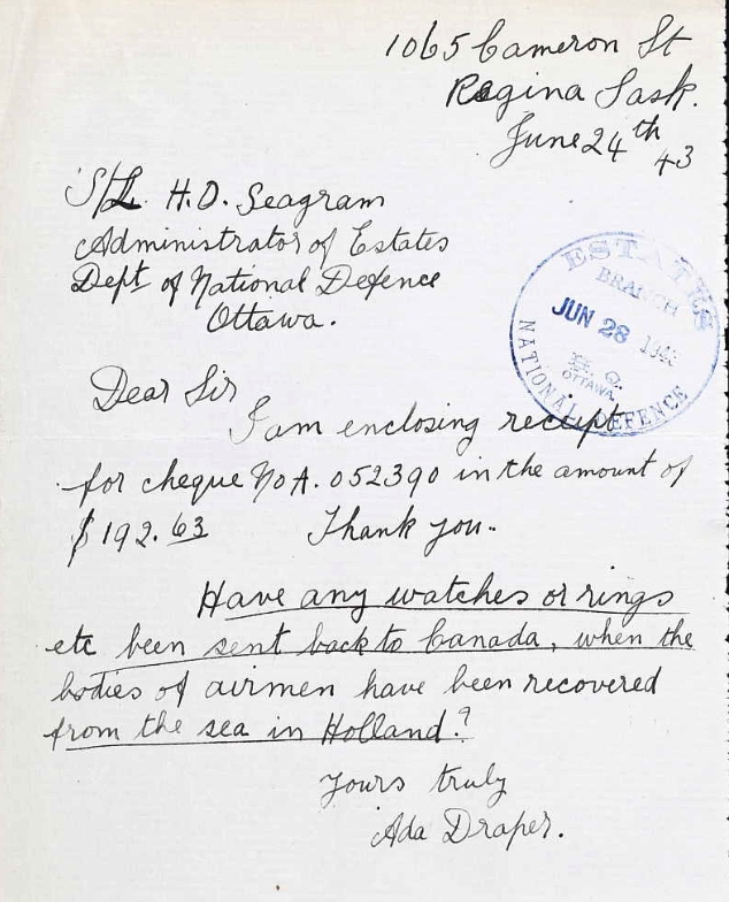 1065 Cameron St
Regina Sask.
June 24th 43
S/L H.D. Seagram
Administrator of Estates
Dept of National Defence
Ottawa.
ESTATES
BRANCH
JUN 28 1943
H. Q.
OTTAWA
NATIONAL DEFENCE
Dear Sir
I am enclosing receipt
for cheque No A. 052390 in the amount of
$192.63 Thank you.
Have any watches or rings
etc been sent back to Canada, when the
bodies of airmen have been recovered
from the sea in Holland?
Yours truly
Ada Draper.